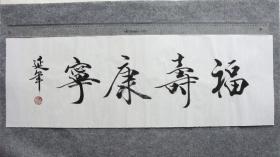 福壽康寧
延年